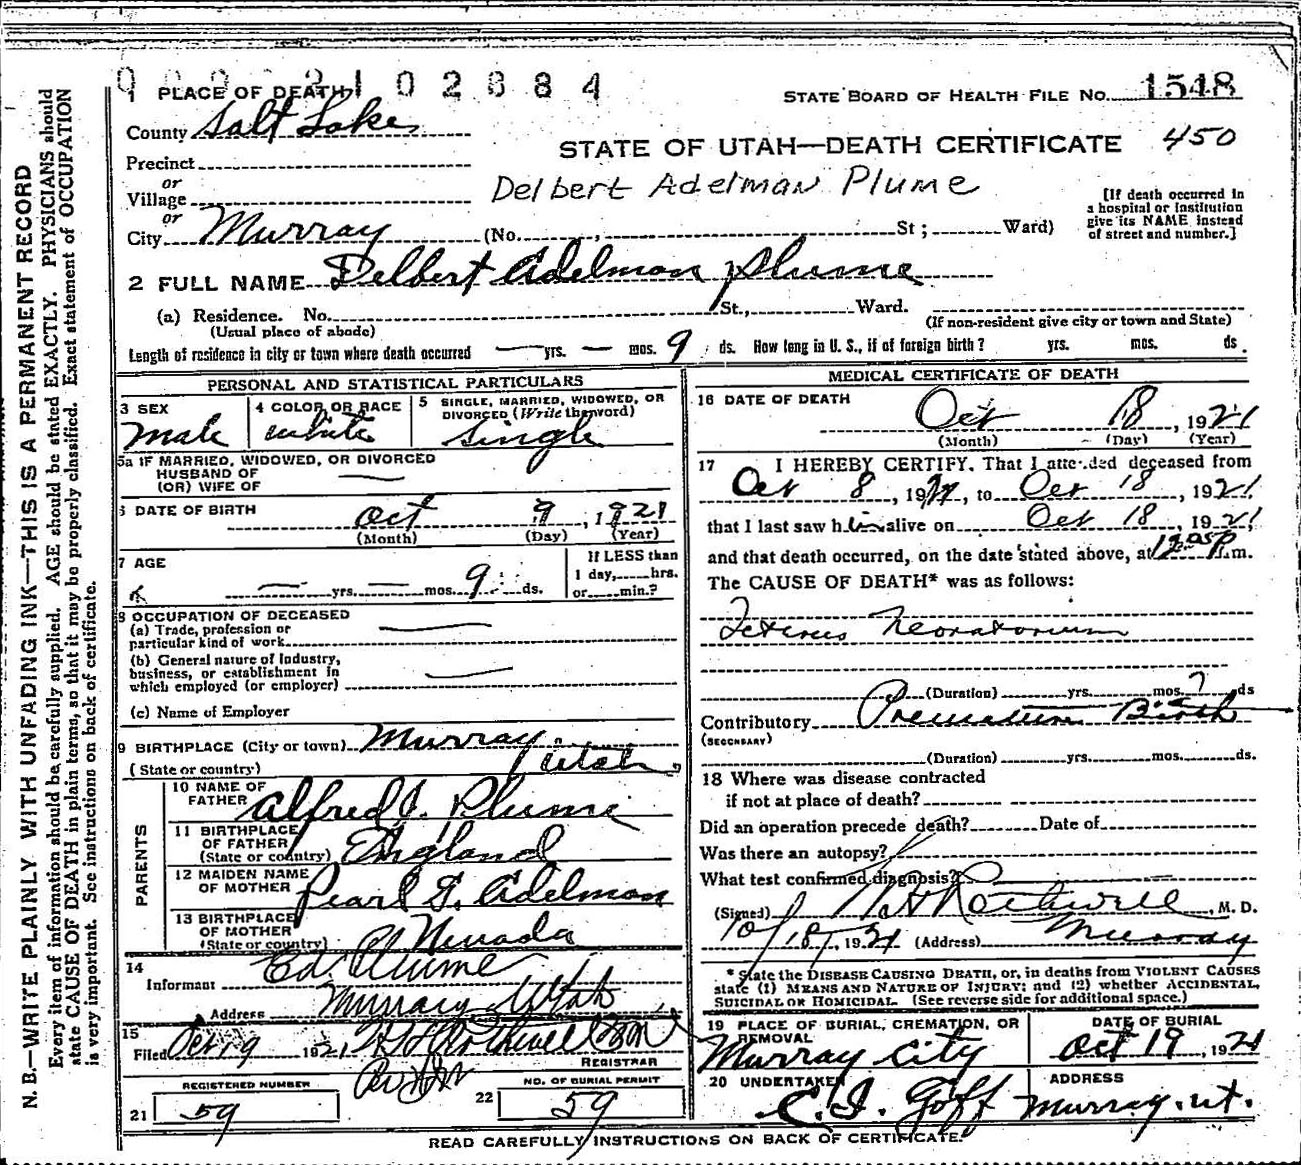 1 PLACE OF DEATH 2102884
STATE BOARD OF HEALTH FILE NO. 1548
County Salt Lake
STATE OF UTAH—DEATH CERTIFICATE 450
Precinct
or
Village
Delbert Adelman Plume
[If death occurred in
a hospital or institution
give its NAME instead
of street and number.]
or
City Murray (No. , St; Ward)
2 FULL NAME Delbert Adelman Plume
(a) Residence. No. St., Ward.
(Usual place of abode) (If non-resident give city or town and State)
Length of residence in city or town where death occurred — yrs. — mos. 9 ds. How long in U. S., if of foreign birth? yrs. mos. ds.
PERSONAL AND STATISTICAL PARTICULARS
3 SEX
male
4 COLOR OR RACE
white
5 SINGLE, MARRIED, WIDOWED, OR
DIVORCED (Write the word)
Single
5a IF MARRIED, WIDOWED, OR DIVORCED
HUSBAND OF
(OR) WIFE OF —
6 DATE OF BIRTH Oct 9, 1921
(Month) (Day) (Year)
7 AGE
— yrs. — mos. 9 ds.
If LESS than
1 day, hrs.
or min.?
8 OCCUPATION OF DECEASED
(a) Trade, profession or
particular kind of work —
(b) General nature of Industry,
business, or establishment in
which employed (or employer) —
(c) Name of Employer
9 BIRTHPLACE (City or town) Murray
(State or country) Utah
PARENTS
10 NAME OF
FATHER Alfred J. Plume
11 BIRTHPLACE
OF FATHER
(State or country) England
12 MAIDEN NAME
OF MOTHER Pearl G. Adelman
13 BIRTHPLACE
OF MOTHER
(State or country) Nevada
14
Informant Ed. Plume
Address Murray Utah
15
Filed Oct 19 1921 H Rothwell
REGISTRAR
REGISTERED NUMBER
21 59
NO. OF BURIAL PERMIT
22 59
MEDICAL CERTIFICATE OF DEATH
16 DATE OF DEATH
Oct 18, 1921
(Month) (Day) (Year)
17 I HEREBY CERTIFY, That I attended deceased from
Oct 8, 1921, to Oct 18, 1921
that I last saw him alive on Oct 18, 1921
and that death occurred, on the date stated above, at m.
The CAUSE OF DEATH* was as follows:
Icterus Neonatorium
(Duration) yrs. mos. ? ds
Contributory Premature Birth
(SECONDARY)
(Duration) yrs. mos. ds.
18 Where was disease contracted
if not at place of death?
Did an operation precede death? Date of
Was there an autopsy?
What test confirmed diagnosis?
(Signed) H Rothwell, M. D.
10/18, 1921 (Address) Murray
* State the DISEASE CAUSING DEATH, or, in deaths from VIOLENT CAUSES
state (1) MEANS AND NATURE OF INJURY; and (2) whether ACCIDENTAL,
SUICIDAL OR HOMICIDAL. (See reverse side for additional space.)
19 PLACE OF BURIAL, CREMATION, OR
REMOVAL
Murray City
DATE OF BURIAL
Oct 19, 1921
20 UNDERTAKER
C. I. Goff
ADDRESS
Murray. ut.
READ CAREFULLY INSTRUCTIONS ON BACK OF CERTIFICATE.
N. B.—WRITE PLAINLY WITH UNFADING INK—THIS IS A PERMANENT RECORD
Every item of information should be carefully supplied. AGE should be stated EXACTLY. PHYSICIANS should
state CAUSE OF DEATH in plain terms, so that it may be properly classified. Exact statement of OCCUPATION
is very important. See instructions on back of certificate.